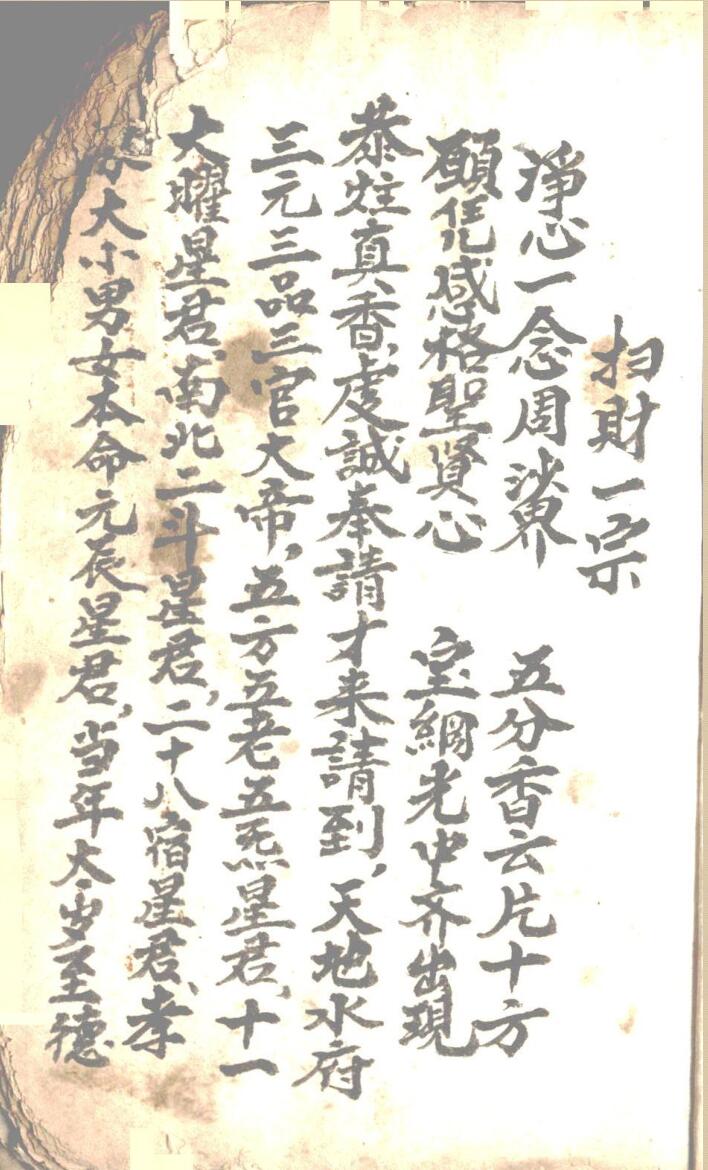 扫財一宗
淨心一念周沙界 五分香云片十方
願凭感格聖賢心 宝網光中齐出現
恭炷真香，虔誠奉請才来請到，天地水府
三元三品三官大帝，五方五老五炁星君，十一
大曜星君，南北二斗星君，二十八宿星君，孝
大小男女本命元辰星君，当年太岁至德